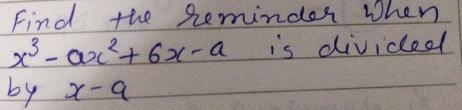 Find the reminder when
x³ - ax² + 6x - a is divided
by x - a